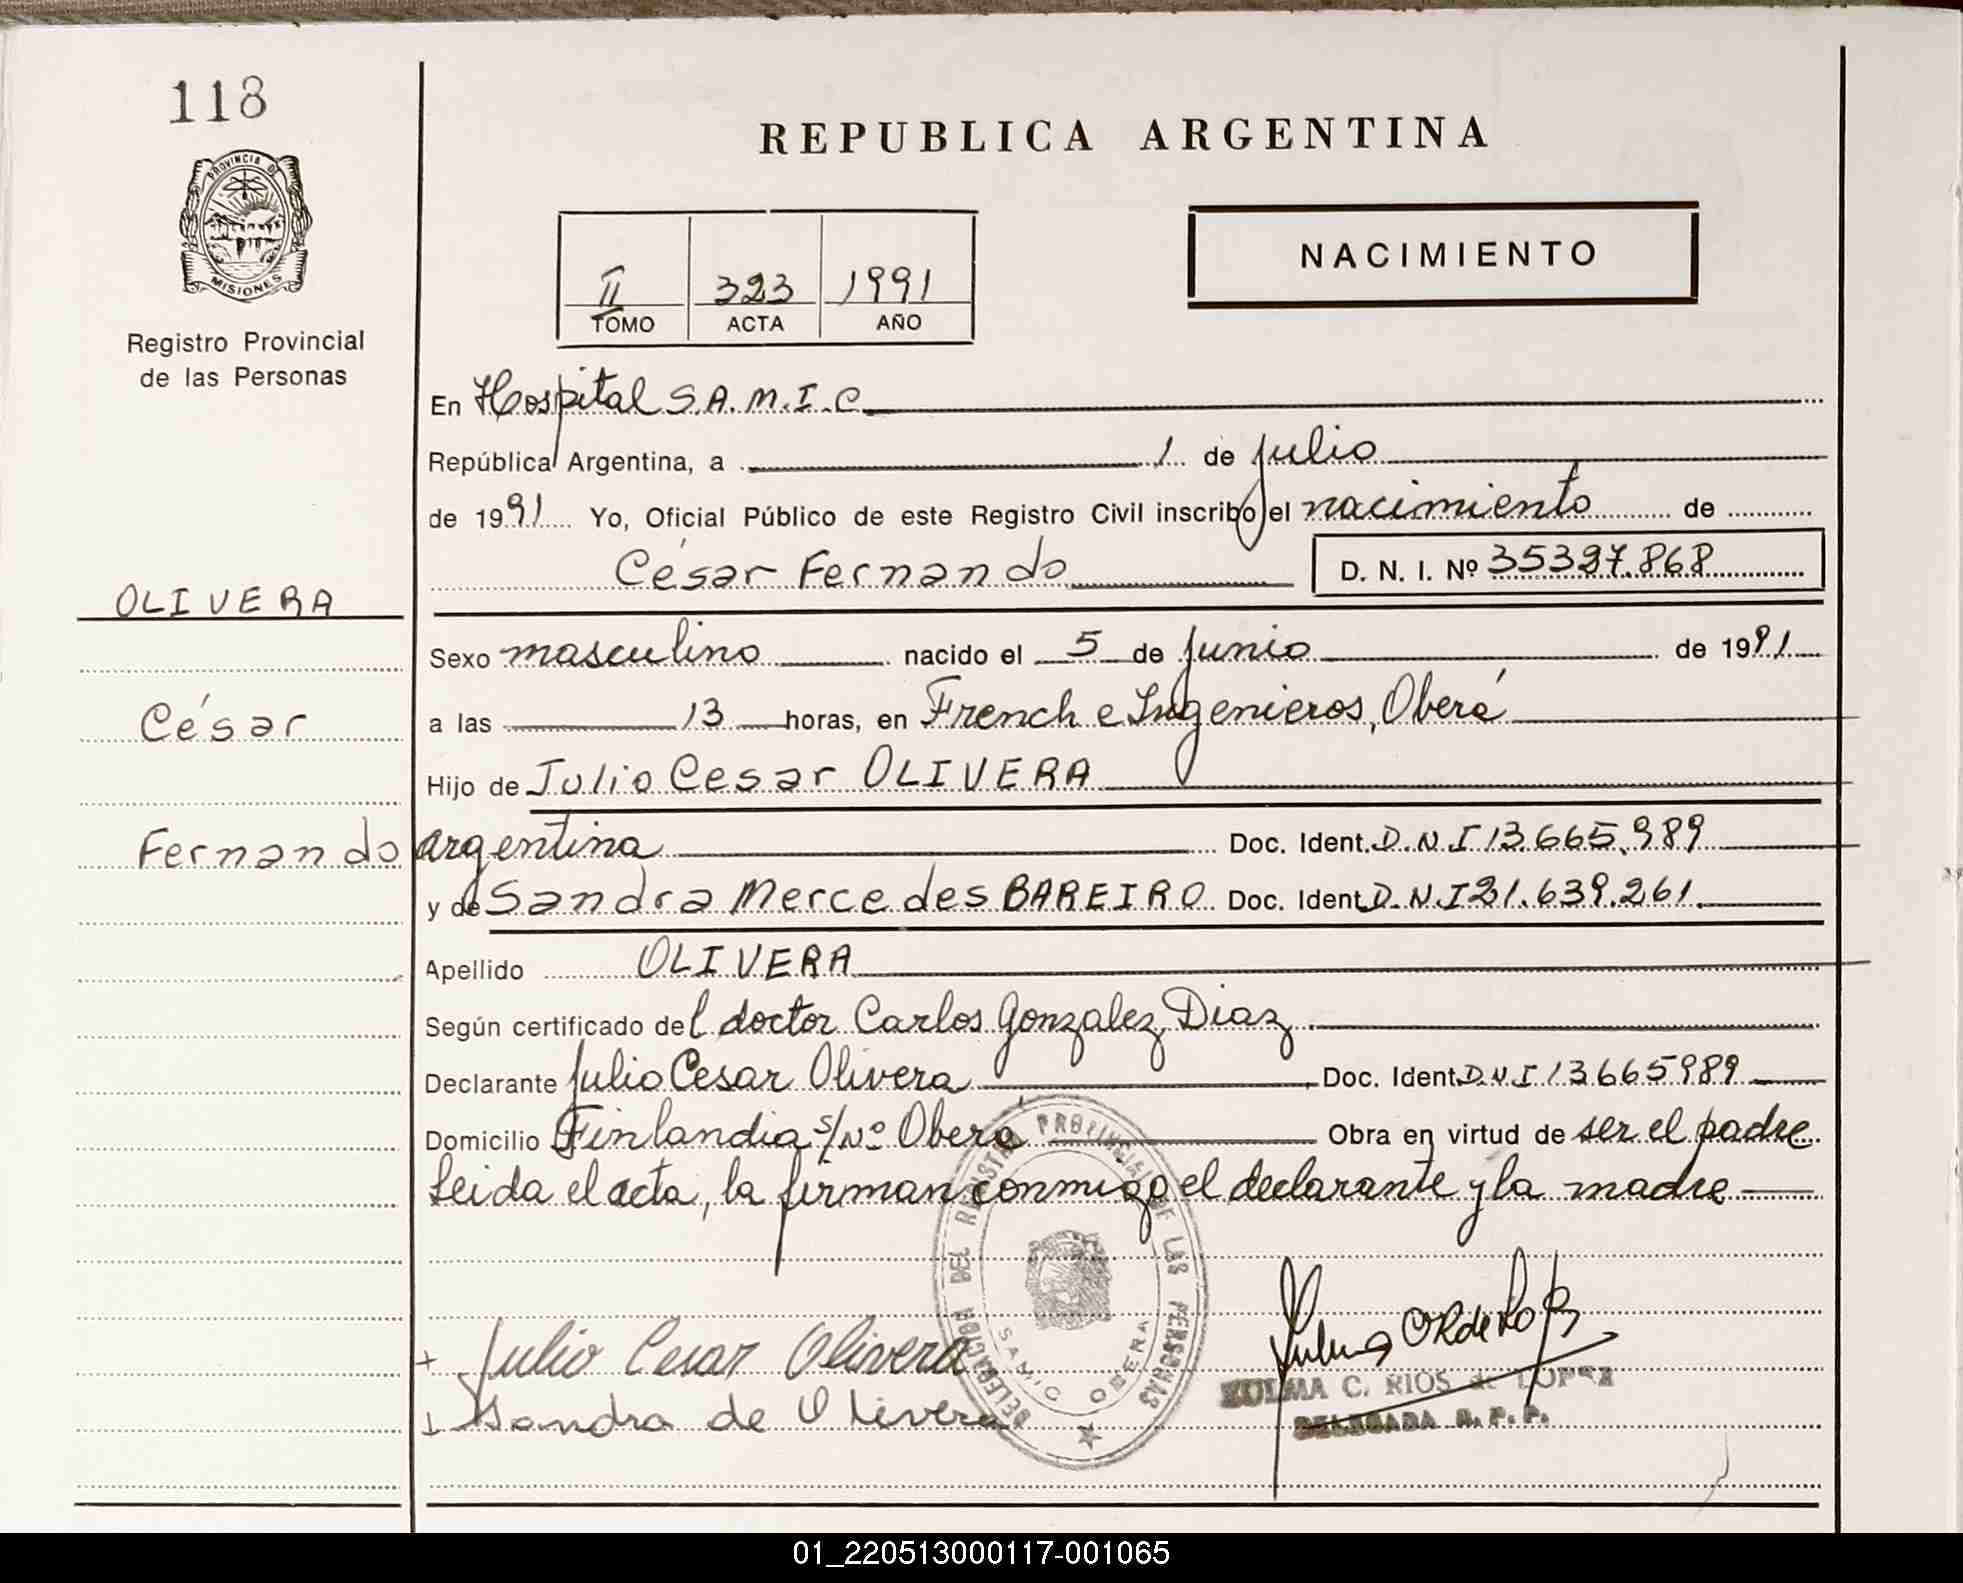 118
PROVINCIA DE
MISIONES
Registro Provincial
de las Personas
OLIVERA
César
Fernando
REPUBLICA ARGENTINA
NACIMIENTO
II 323 1991
TOMO ACTA AÑO
En Hospital S.A.M.I.C.
República Argentina, a 1 de julio
de 1991 Yo, Oficial Público de este Registro Civil inscribo el nacimiento de
César Fernando D. N. I. Nº 35327.868
Sexo masculino nacido el 5 de junio de 1991
a las 13 horas, en French e Ingenieros, Oberá
Hijo de Julio Cesar OLIVERA
argentina Doc. Ident. D.N.I 13.665.989
y de Sandra Mercedes BAREIRO Doc. Ident. D.N.I 21.639.261
Apellido OLIVERA
Según certificado del doctor Carlos Gonzalez Diaz
Declarante Julio Cesar Olivera Doc. Ident. D.N.I 13665989
Domicilio Finlandia s/Nº Oberá Obra en virtud de ser el padre
Leida el acta, la firman conmigo el declarante y la madre
DELEGACION DEL REGISTRO PROVINCIAL DE LAS PERSONAS
SAMIC OBERA
+ Julio Cesar Olivera
Sandra de Olivera
ZULMA C. RIOS de LOPEZ
DELEGADA R. P. P.
01_220513000117-001065